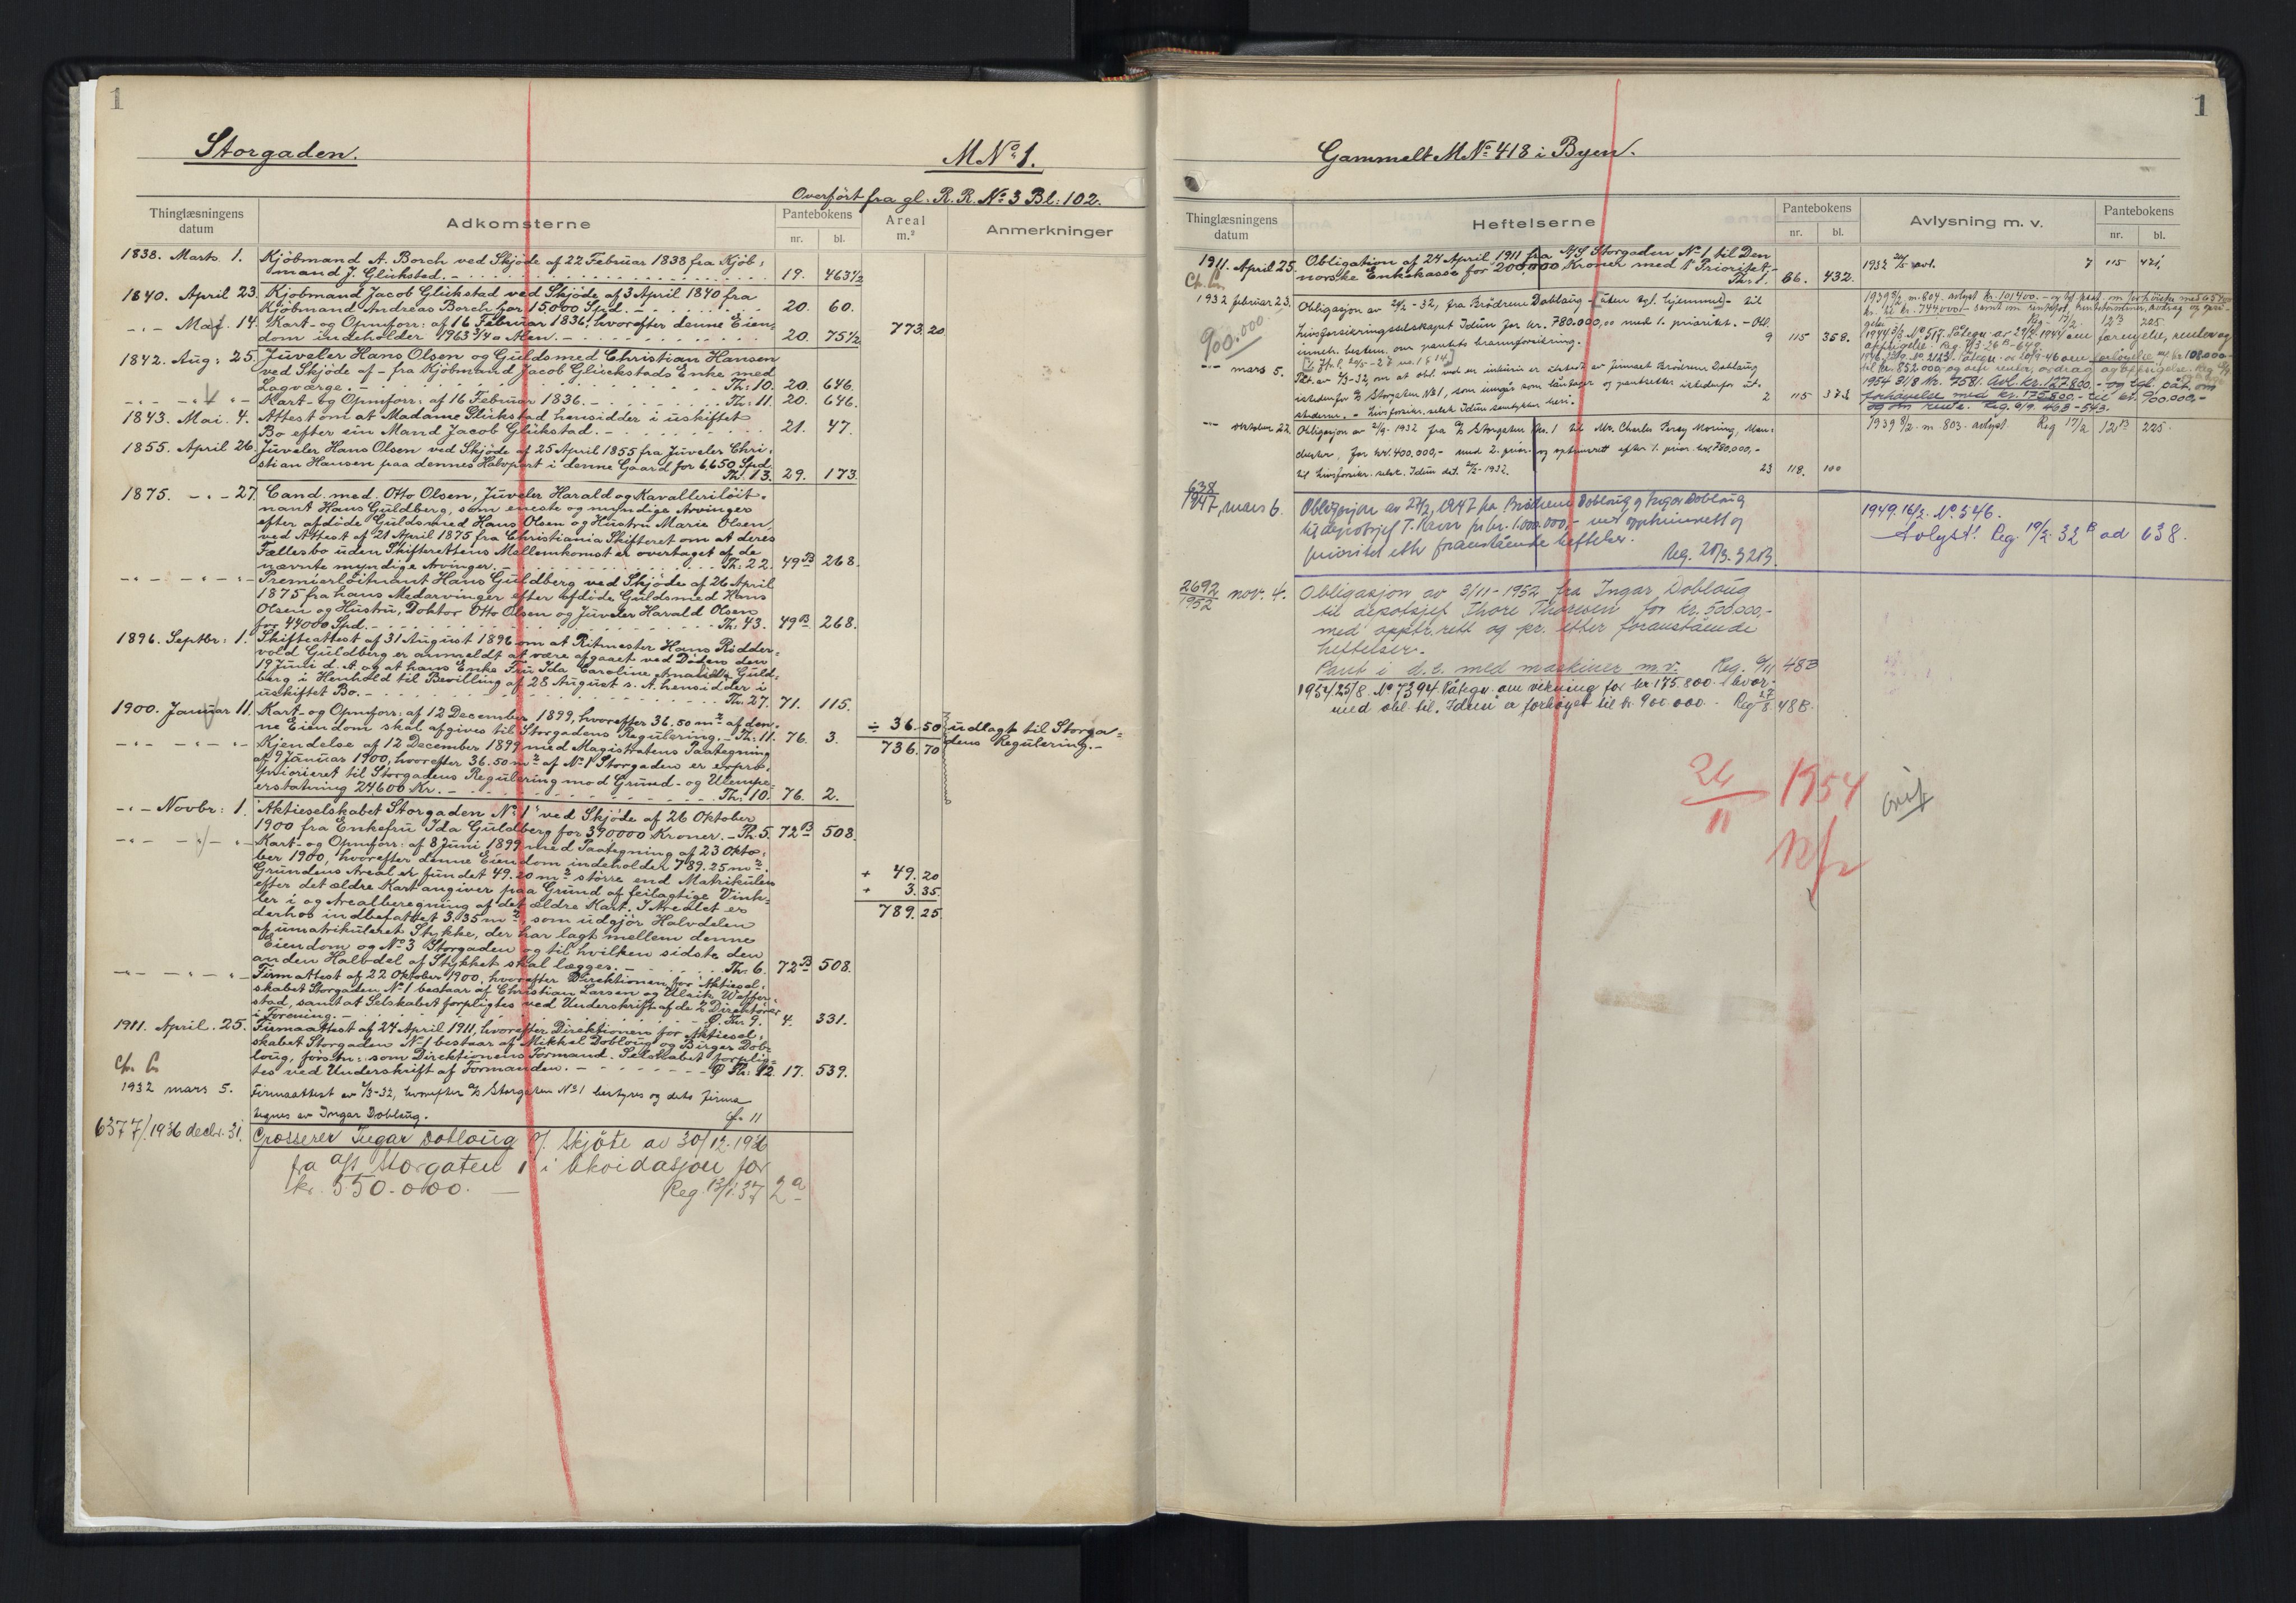 1
Storgaden.
M Nº 1.
Overført fra gl. R. R. Nº 3 Bl: 102.
Thinglæsningens datum
Adkomsterne
Pantebokens
nr. bl.
Areal m.²
Anmerkninger
1838. Marts. 1. Kjöbmand A. Borch ved Skjöde af 22 Februar 1838 fra Kjöb-
mand J. Glückstad. 19. 463½
1840. April 23. Kjöbmand Jacob Glückstad ved Skjöde af 3 April 1840 fra
Kjöbmand Andreas Borch for 15,000 Spd. 20. 60.
-"- Mai. 14. Kart- og Opmforr: af 16 Februar 1836, hvorefter denne Eien- 773.20
dom indeholder 1963 3/40 Alen. 20. 75½
1842. Aug: 25. Juveler Hans Olsen og Guldsmed Christian Hansen
ved Skjöde af - fra Kjöbmand Jacob Glückstads Enke med
Lagværge. Th: 10. 20. 646.
-"- Kart- og Opmforr: af 16 Februar 1836. Th: 11. 20. 646.
1843. Mai. 4. Attest om at Madame Glückstad hensidder i uskiftet
Bo efter sin Mand Jacob Glückstad. 21. 47.
1855. April 26. Juveler Hans Olsen ved Skjöde af 25 April 1855 fra Juveler Chri-
stian Hansen paa dennes Halvpart i denne Gaard for 6,650 Spd.
Th: 13. 29. 173.
1875. -"- 27. Cand. med. Otto Olsen, Juveler Harald og Kavalleriløit-
nant Hans Guldberg, som eneste og myndige Arvinger
efter afdöde Guldsmed Hans Olsen og Hustru Marie Olsen,
ved Attest af 21 April 1875 fra Christiania Skifteret om at deres
Fællesbo uden Skifterettens Mellemkomst er overtaget af de
nævnte myndige Arvinger. Th: 22. 49B 268.
-"- Premierlöitnant Hans Guldberg ved Skjöde af 26 April
1875 fra hans Medarvinger efter afdöde Guldsmed Hans
Olsen og Hustru, Doktor Otto Olsen og Juveler Harald Olsen
for 44000 Spd. Th: 43. 49B 268.
1896. Septbr: 1. Skifteattest af 31 August 1896 om at Ritmester Hans Rödder-
vold Guldberg er anmeldt at være afgaaet ved Döden den
19 Juni d. A. og at hans Enke Fru Ida Caroline Amalie Guld-
berg i Henhold til Bevilling af 28 August s. A. hensidder i
uskiftet Bo. Th: 27. 71. 115.
1900. Januar 11. Kart- og Opmforr: af 12 December 1899, hvorefter 36.50 m² af den-
ne Eiendom skal afgives til Storgadens Regulering. Th: 11. 76. 3.
÷ 36.50 udlagt til Storga-
736.70 dens Regulering.
-"- Kjendelse af 12 December 1899 med Magistratens Paategning
af 9 Januar 1900, hvorefter 36.50 m² af Nº 1 Storgaden er expro-
prieret til Storgadens Regulering mod Grund- og Ulempe-
erstatning 24600 Kr. Th: 10. 76. 2.
-"- Novbr: 1. "Aktieselskabet Storgaden Nº 1" ved Skjöde af 26 Oktober
1900 fra Enkefru Ida Guldberg for 390000 Kroner. Th: 5. 72B 508.
-"- Kart- og Opmforr: af 8 Juni 1899 med Paategning af 23 Okto-
ber 1900, hvorefter denne Eiendom indeholder 789.25 m².
Grundens Areal er fundet 49.20 m² större end Matrikulen + 49.20
efter det ældre Kart angiver paa Grund af feilagtige Vink- + 3.35
ler i og Arealberegning af det ældre Kart. I Arealet er
derhos indbefattet 3.35 m², som udgjör Halvdelen 789.25
af umatrikuleret Stykke, der har lagt mellem denne
Eiendom og Nº 3 Storgaden og til hvilken sidste den
anden Halvdel af Stykket skal lægges. Th: 6. 72B 508.
-"- Firmattest af 22 Oktober 1900, hvorefter Direktionen for Aktiesel-
skabet Storgaden Nº 1 bestaar af Christian Larsen og Ulrik Weffer-
stad, samt at Selskabet forpligtes ved Underskrift af de 2 Direktörer
i Forening. Th: 9. 4. 331.
1911. April. 25. Firmaattest af 24 April 1911, hvorefter Direktionen for Aktiesel-
skabet Storgaden Nº 1 bestaar af Mikkel Dobloug og Birger Dob-
loug, först n: som Direktionens Formand. Selskabet forplig-
tes ved Underskrift af Formanden. Th: 12. 17. 539.
1932 mars 5. Firmaattest av 4/3-32, hvorefter A/S Storgaten Nº 1 bestyres og dets firma
tegnes av Ingar Dobloug. 11
6377/1936 decbr. 31. Grosserer Ingar Dobloug if. skjöte av 30/12.1936
fra a/s Storgaten 1 i likvidasjon for
kr. 550.000. Reg 13/1.37 2a
1
Gammelt M Nº 418 i Byen.
Thinglæsningens datum
Heftelserne
Pantebokens
nr. bl.
Avlysning m. v.
Pantebokens
nr. bl.
1911. April 25. Obligation af 24 April 1911 fra A/S Storgaden Nº 1 til Den
norske Enkekasse for 200,000 Kroner med 1' Prioritet.
Th: 1. 86. 432.
1932 24/5 avl. 7 115 421.
1932 februar 23. Obligasjon av 22/2-32, fra Brödrene Dobloug - [uten tgl. hjemmel] - til
Livsforsikringsselskapet Idun for kr. 780.000,00 med 1. prioritet. - Obl.
inneh. bestem. om pantets brannforsikring. 9 115 359.
900.000.
1939 8/2 m. 804. avlyst kr. 101400.- og tgl. paat. om forhöielse med 65400
kr. til kr. 744.000.
Reg. 17/2 12B 225.
-"- mars 5. Pat. av 4/3-32, om at obl. ved en inkurie er utstedt av firmaet Brödrene Dobloug
istedenfor A/S Storgaten Nº 1, som inngår som låntager og pantsetter istedenfor ut-
stederne. - Livsforsikr. selsk. Idun samtykker heri. 2 115 378
1954 31/8 Nr. 7581. Avl. kr. 127.800.- og tgl. påt. om
forhöyelse med kr. 175.800.- til kr. 900.000.-
og om rente. Reg. 6/9. 46B-543.
-"- oktober 22. Obligasjon av 2/9-1932 fra A/S Storgaten No. 1 til Mr. Charles Percy Moring, Man-
chester, for kr. 400.000,- med 2. prior. og opptrinnsrett efter 1. prior. kr. 780,000,-
til Livsforsikr. selsk. Idun dat. 22/2-1932. 23 118. 100
1939 8/2 m. 803. avlyst. Reg 17/2 12B 225.
638/1947, mars 6. Obligasjon av 27/2 1947 fra Brödrene Dobloug og Ingar Dobloug
til depotsjef T. Kaern for kr. 1.000.000,- med opptrinnsrett og
prioritet etter foranstående heftelser.
Reg. 20/3. 32B.
1949. 16/2. Nº 546.
Avlyst! Reg. 19/2. 32B ad 638.
2692/1952 nov. 4. Obligasjon av 3/11-1952 fra Ingar Dobloug
til depotsjef Thore Thoresen for kr. 500.000,-
med opptr. rett og pr. etter foranstående
heftelser.
Pant i d. e. med maskiner m.v. Reg. 6/11 48B
1954 25/8. Nº 7394. Påtegn. om vikning for kr 175.800.- hvor-
med obl. til Idun er forhöyet til kr. 900.000.- Reg 27/8 48B.
24/11 1954